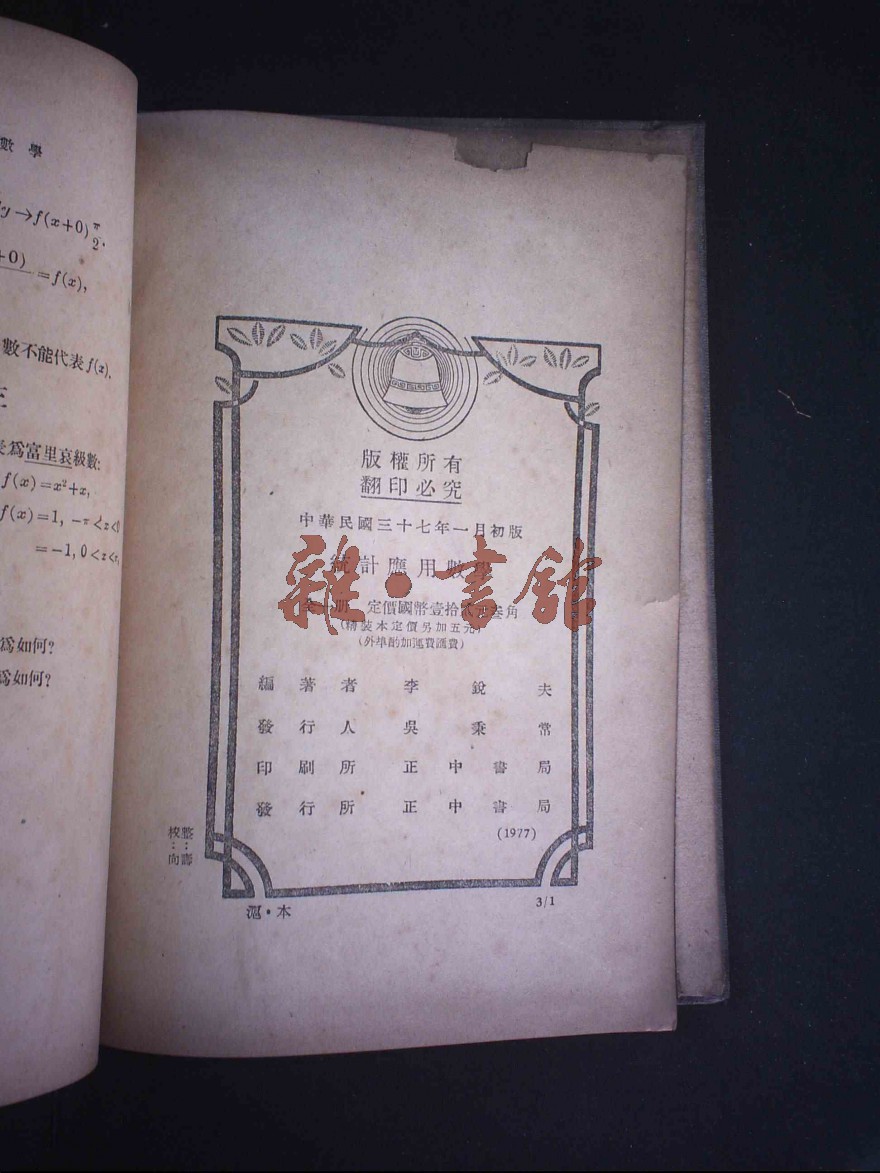 數學
→f(x+0)π/2.
+0)
=f(x),
數不能代表f(x).
爲富里哀級數:
f(x)=x²+x,
f(x)=1, -π<x<0
=-1, 0<x<π,
爲如何?
爲如何?
版權所有
翻印必究
中華民國三十七年一月初版
統計應用數學
全一册 定價國幣壹拾貳元叁角
(精裝本定價另加五元)
(外埠酌加運費匯費)
編著者 李銳夫
發行人 吳秉常
印刷所 正中書局
發行所 正中書局
(1977)
校整
:  :
向壽
滬·本
3/1
雜·書館